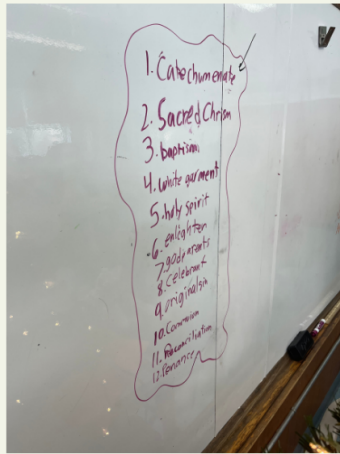 1. Catechumenate
2. Sacred Chrism
3. baptism
4. white garment
5. holy spirit
6. enlighten
7. godparents
8. celebrant
9. original sin
10. Communion
11. Reconciliation
12. Penance